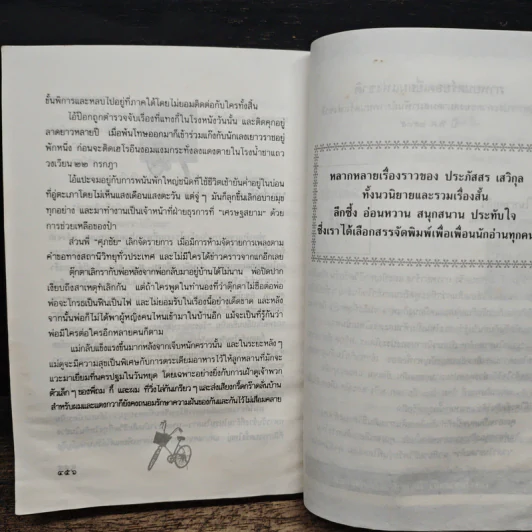 ขั้นพิการและหลบไปอยู่ที่ภาคใต้โดยไม่ยอมติดต่อกับใครทั้งสิ้น
ไอ้ป๊อกถูกตำรวจจับเรื่องที่แทงที่ในโรงหนังวันนั้น และติดคุกอยู่
ลาดยาวหลายปี เมื่อพ้นโทษออกมาก็เข้าร่วมแก๊งกับนักเลงเยาวราชอยู่
พักหนึ่ง ก่อนจะติดเฮโรอีนงอมแงมกระทั่งลงแดงตายในโรงน้ำชาแถว
วงเวียน ๒๒ กรกฎา
ไอ้แปะจมอยู่กับการพนันพักใหญ่ชนิดที่ใช้ชีวิตเช้ายันค่ำอยู่ในบ่อน
ที่อู่ตะเภาโดยไม่เห็นแสงเดือนแสงตะวัน แต่จู่ๆ มันก็ลุกขึ้นเลิกอบายมุข
ทุกอย่าง และมาทำงานเป็นเจ้าหน้าที่ฝ่ายธุรการที่ "เศรษฐสยาม" ด้วย
การช่วยเหลือของป้า
ส่วนพี่ "ศุภชัย" เลิกจัดรายการ เมื่อมีการห้ามจัดรายการเพลงตาม
คำขอทางสถานีวิทยุทั่วประเทศ และไม่มีใครได้ข่าวคราวจากแกอีกเลย
ตุ๊กตาเลิกรากับพ่อหลังจากพ่อกลับมาอยู่บ้านได้ไม่นาน พ่อปิดปาก
เงียบถึงสาเหตุที่เลิกกัน แต่ถ้าใครพูดในทำนองที่ว่าตุ๊กตาไม่ซื่อต่อพ่อ
พ่อจะโกรธเป็นฟืนเป็นไฟ และไม่ยอมรับในเรื่องนี้อย่างเด็ดขาด และหลัง
จากนั้นพ่อก็ไม่ได้พาผู้หญิงคนไหนเข้ามาในบ้านอีก แม้จะเป็นที่รู้กันว่า
พ่อมีใครต่อใครอีกหลายคนก็ตาม
แม่กลับแข็งแรงขึ้นมากหลังจากเจ็บหนักคราวนั้น และในระยะหลังๆ
แม่ดูจะมีความสุขเป็นพิเศษกับการตระเตรียมอาหารไว้ให้ลูกหลานที่มักจะ
แวะมาเยี่ยมที่นครปฐมในวันหยุด โดยเฉพาะอย่างยิ่งกับการเฝ้าดูเจ้าพวก
ตัวเล็กๆ ของพี่ถม กี้ และผม ที่วิ่งไล่กันเกรียวๆ และส่งเสียงกรี๊ดกร๊าดลั่นบ้าน
สำหรับผมและแตงกวาก็ยังคงถนอมรักษาความฝันของกันและกันไว้ไม่เสื่อมคลาย
๔๕๖
หลากหลายเรื่องราวของ ประภัสสร เสวิกุล
ทั้งนวนิยายและรวมเรื่องสั้น
ลึกซึ้ง อ่อนหวาน สนุกสนาน ประทับใจ
ซึ่งเราได้เลือกสรรจัดพิมพ์เพื่อเพื่อนนักอ่านทุกคน